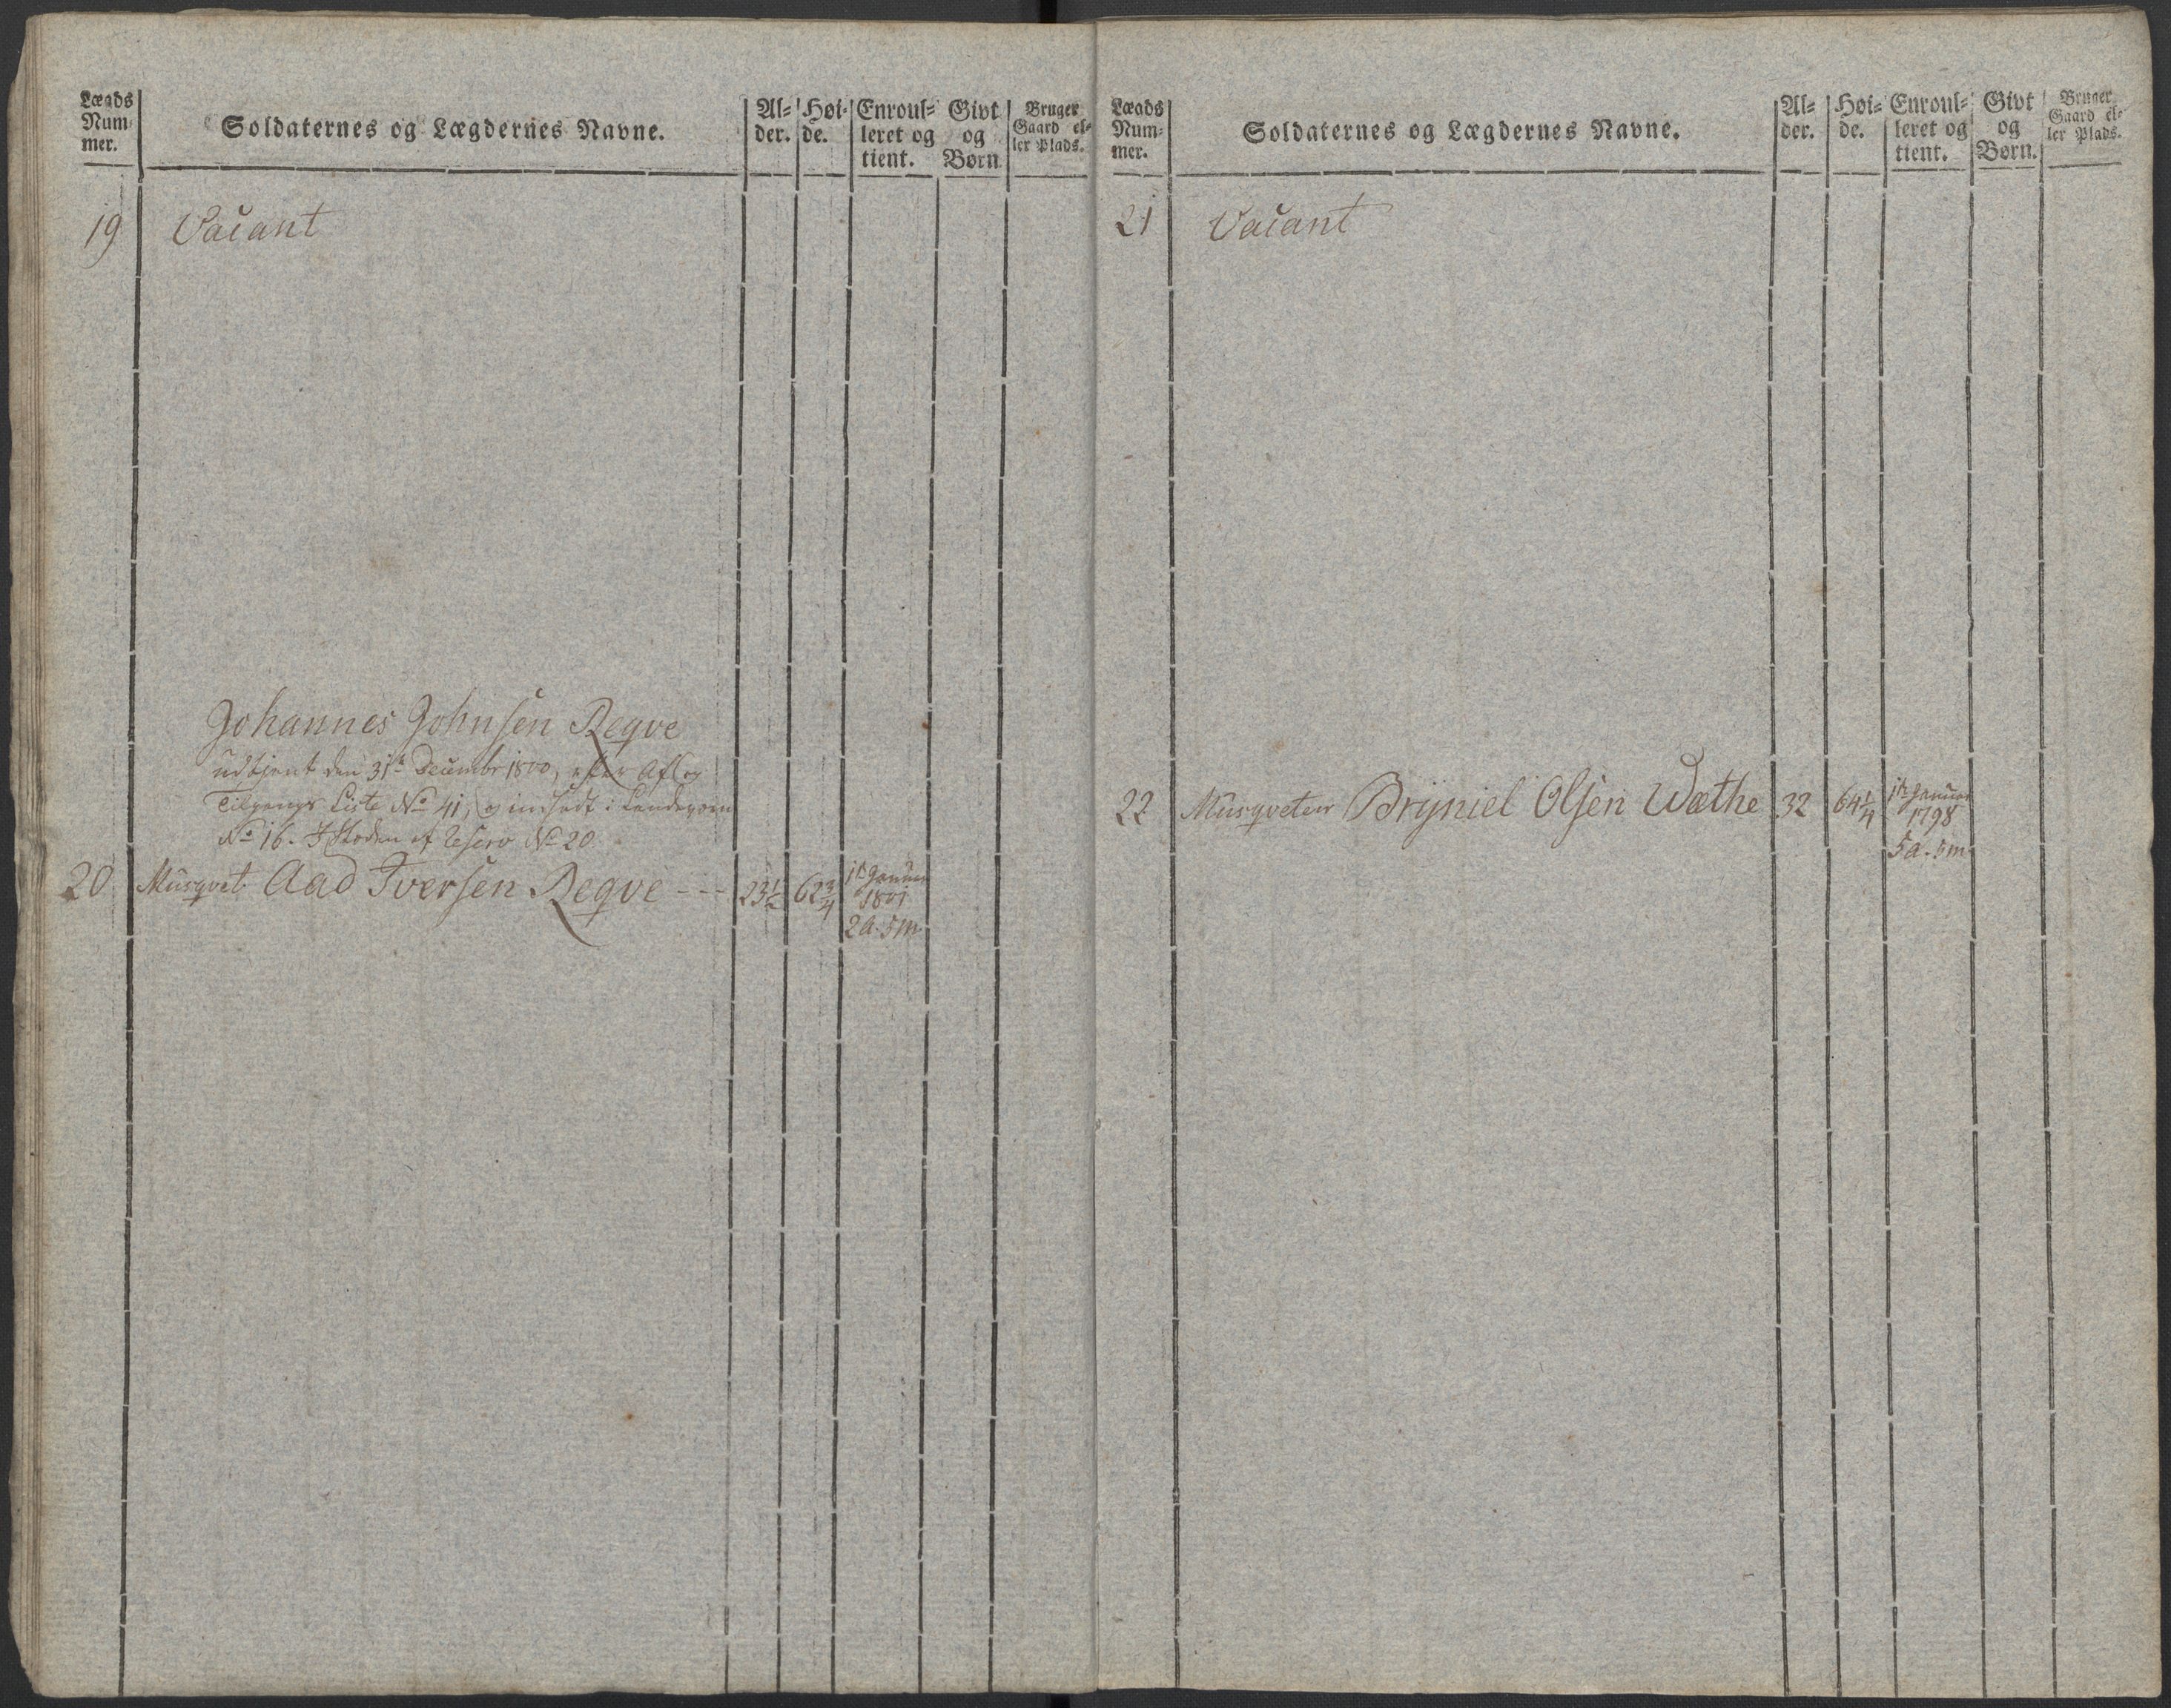 Lægds Num- mer.
Soldaternes og Lægdernes Navne.
Al- der.
Høi- de.
Enroul- leret og tient.
Givt og Børn.
Bruger Gaard el- ler Plads.
19 Vacant
Johannes Johnsen Reqve
udtjent den 31te Decembr 1800, efter Afl og
Tilgangs Liste No 41, og indsadt i Landeværn
No 16. I Steden af Reserv No 20
20 Musqvet Aad Iversen Reqve --- 23 1/2 62 3/4 1te Januar
1801
2a. 5m
Lægds Num- mer.
Soldaternes og Lægdernes Navne.
Al- der.
Høi- de.
Enroul- leret og tient.
Givt og Børn.
Bruger Gaard el- ler Plads.
21 Vacant
22 Musqveteer Brÿniel Olsen Wæthe 32 64 1/4 1te Januar
1798
5a. 5m